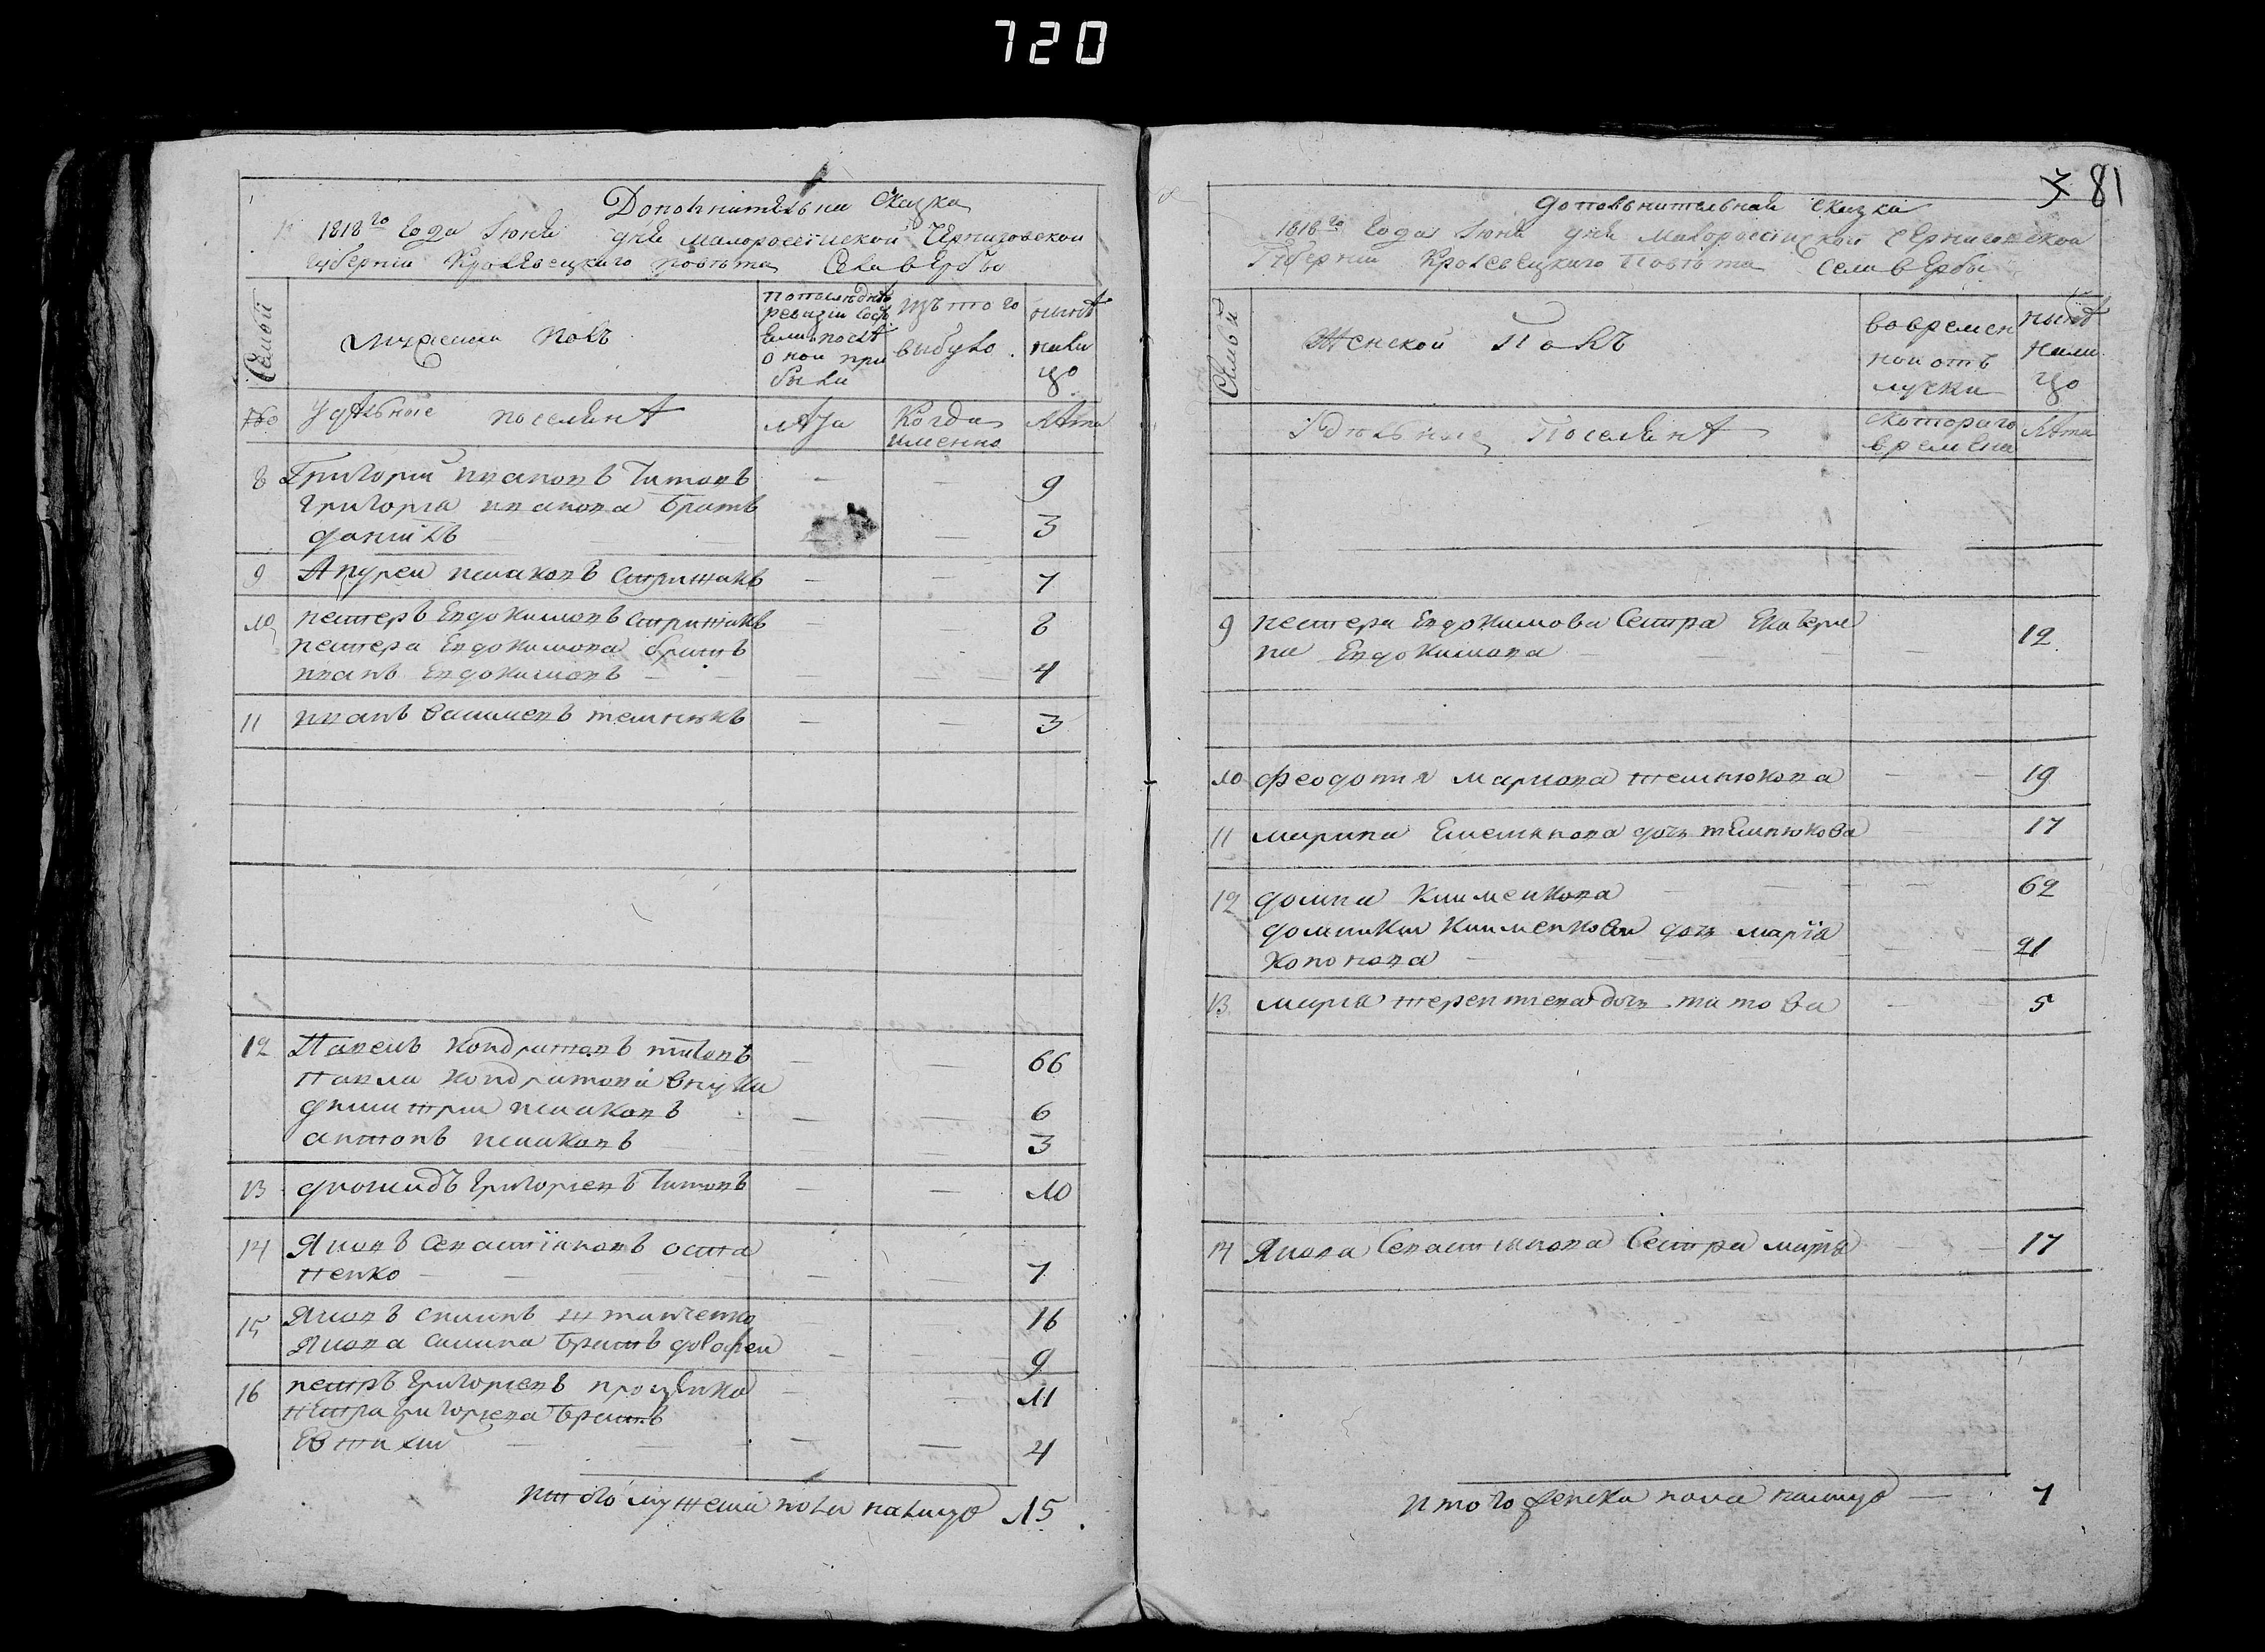 720
Дополнительна Сказка
1818го года Июня дня Малороссийской Черниговской
Губернии Кролевецкого повѣта Села вербы
Семьи
Мужеска полъ
по последнѣ
ревизии состо
или послѣ
оной при
были
Изъ того
выбуло
нынѣ
нали
цо
Удѣльные поселянѣ
лѣта
Когда
именно
лѣта
8 Григории ивановъ Титовъ — — 9
григория иванова братъ
данiилъ — — 3
9 Андреи исаковъ Стрижакъ — — 7
10 петеръ Евдокимовъ Стрижакъ — — 8
петера Евдокимова братъ
иванъ Евдокимовъ — — 4
11 иванъ 3
12 Павелъ кондратовъ титовъ — — 66
павла кондратова внуки
дмитрии исаковъ — — 6
антонъ исаковъ — — 3
13 диомидъ григориевъ Титовъ — — 10
14 Яковъ Севастiяновъ оста
пенко — — 7
15 Яковъ 16
братъ 9
16 петръ григориевъ проценко — 11
петра григориева братъ
4
итого мужеска пола налицо 15
81
дополнительная сказка
1818го года Июня дня Малороссийской Черниговской
Губернии Кролевецкого Повѣта Села вербы
Семьи
Женской Полъ
во времен
ной отъ
лучки
нынѣ
нали
цо
Удѣльные Поселянѣ
с котораго
времена
лѣта
9 петера Евдокимова Сестра Екатери
на Евдокимова — 12
10 феодотя маркова темнюкова — — 19
11 марина Емелянова дочъ темнюкова 17
12 домна клименкова — — 62
домники клименковои дочъ марiя
кононова — — 21
13 мария терентиева дочъ титова — 5
14 Якова Севастиянова Сестра марiя — 17
итого женска пола налицо — 7